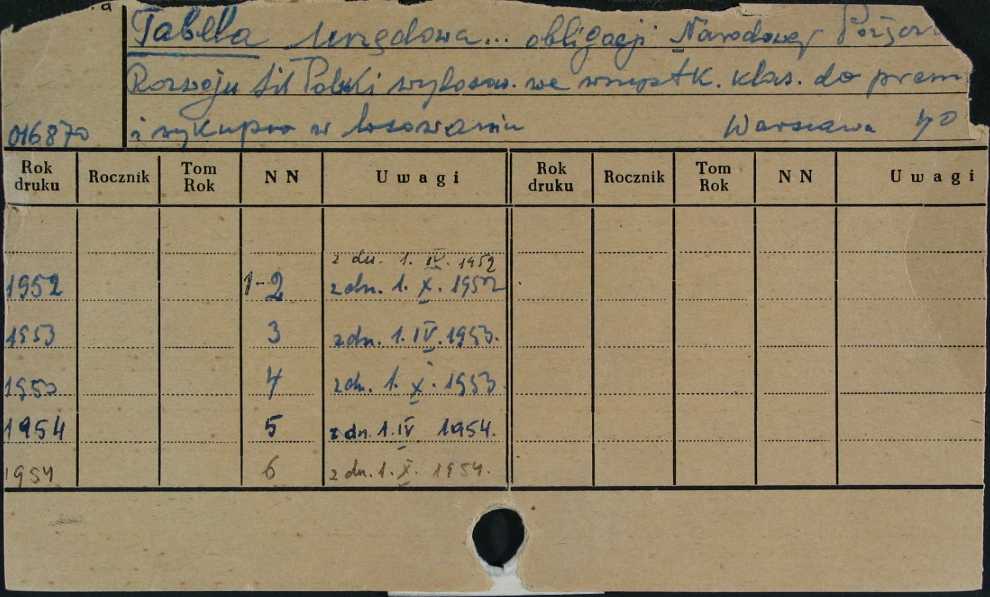 a
Tabela urzędowa... obligacji Narodowej Pożycz
Rozwoju Sił Polski wylosow. we wszystk. klas. do prem
016870 i wykupu w losowaniu Warszawa
Rok druku Rocznik Tom Rok NN Uwagi Rok druku Rocznik Tom Rok NN Uwagi
z dn. 1. IV. 1952
1952 1-2 z dn. 1. X. 1952
1953 3 z dn. 1. IV. 1953.
1953 4 z dn. 1. X. 1953.
1954 5 z dn. 1. IV 1954.
1954 6 z dn. 1. X. 1954.